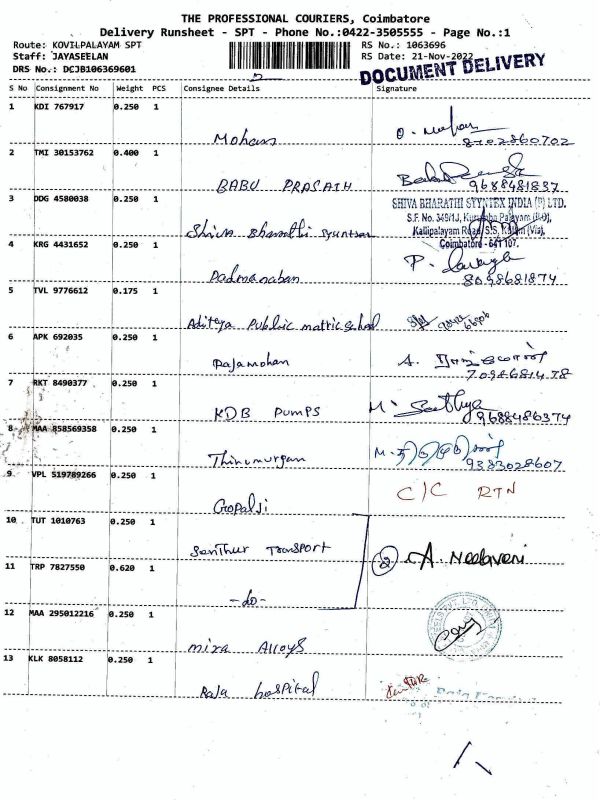 THE PROFESSIONAL COURIERS, Coimbatore
Delivery Runsheet - SPT - Phone No.:0422-3505555 - Page No.:1
Route: KOVILPALAYAM SPT
Staff: JAYASEELAN
DRS No.: DCJB106369601
RS No.: 1063696
RS Date: 21-Nov-2022
DOCUMENT DELIVERY
S No Consignment No Weight PCS Consignee Details Signature
1 KDI 767917 0.250 1
Mohan
8702860702
2 TMI 30153762 0.400 1
BABU PRASATH 9688481837
3 DDG 4580038 0.250 1
SHIVA BHARATHI SYYNTEX INDIA (P) LTD.
S.F. No. 349/1J, Kurumba Palayam (P.O),
Kallipalayam Road, S.S. Kulam (Via),
Coimbatore - 641 107.
Shiva Bharathi
4 KRG 4431652 0.250 1
Padmanaban 8098681874
5 TVL 9776612 0.175 1
Aditya Public matric school
6 APK 692035 0.250 1
Rajamohan
7098681478
7 RKT 8490377 0.250 1
KDB PUMPS M. Sathya
9688486374
8 MAA 858569358 0.250 1
Thirumurgan 9383028607
9 VPL 519789266 0.250 1
Gopalji C/C RTN
10 TUT 1010763 0.250 1
Senthur Transport
11 TRP 7827550 0.620 1
② A. Neelaveni
-do-
12 MAA 295012216 0.250 1
mixa Alloys
13 KLK 8058112 0.250 1
Raja hospital